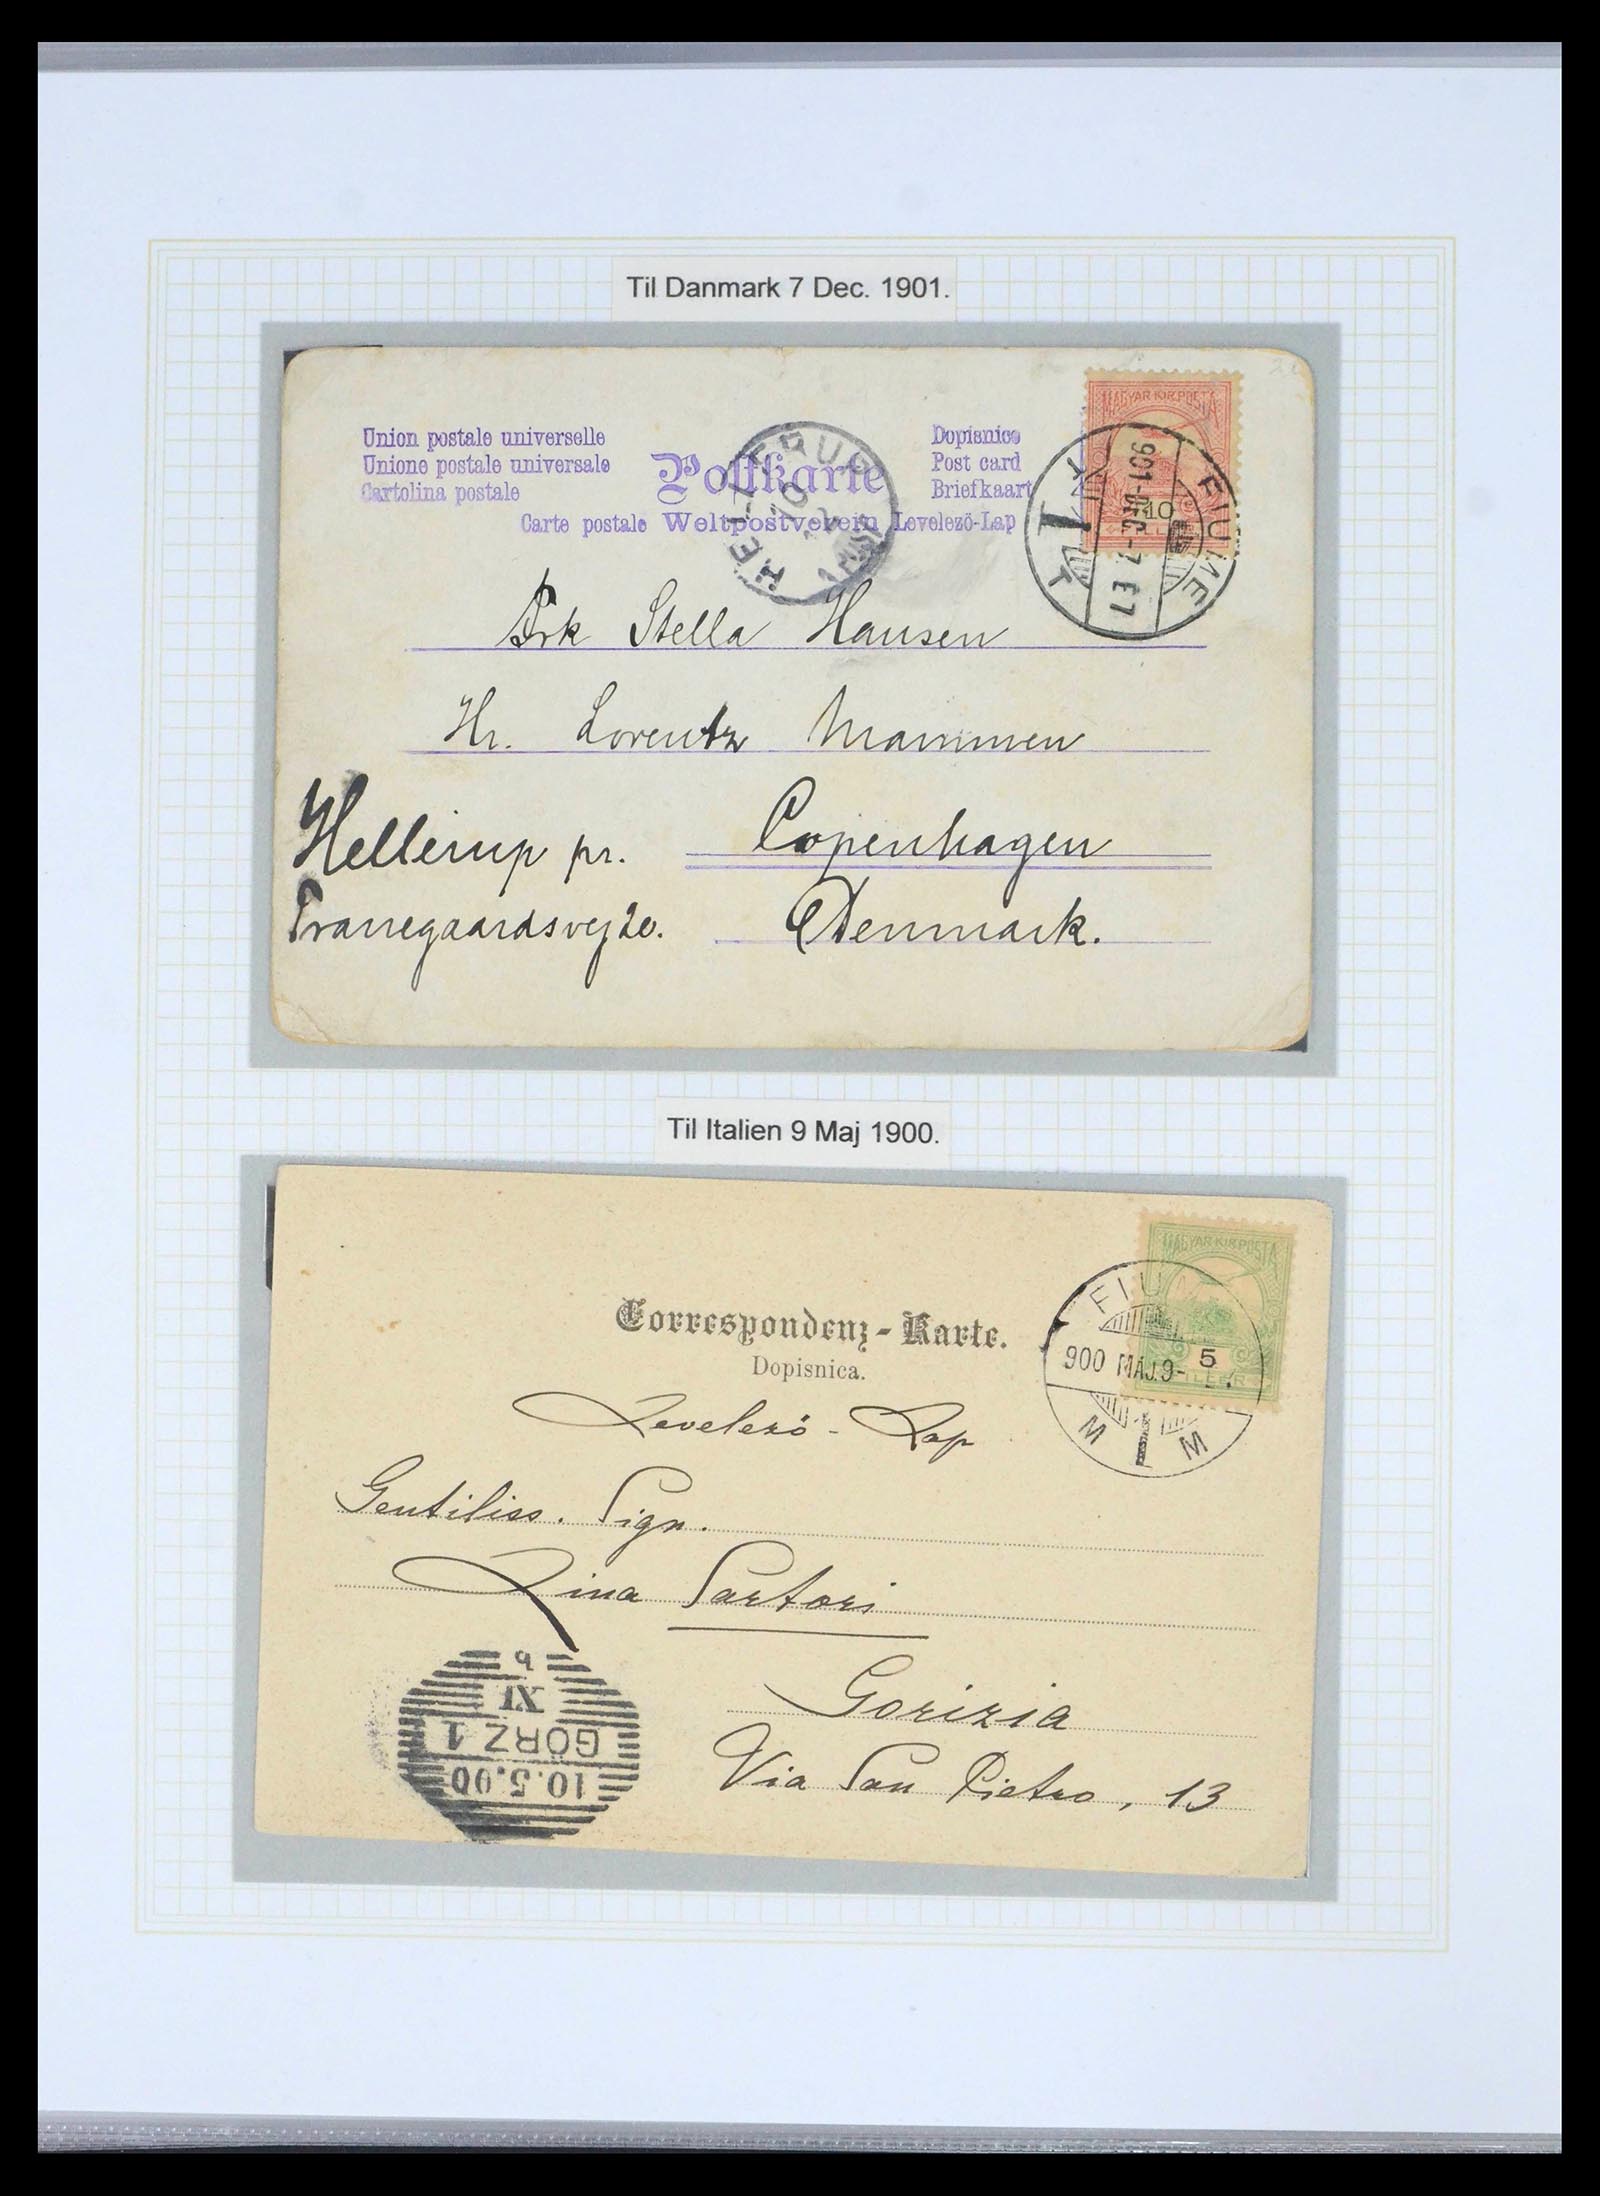 Til Danmark 7 Dec. 1901.
Union postale universelle
Unione postale universale
Cartolina postale
Postkarte
Dopisnice
Post card
Briefkaart
Carte postale Weltpostverein Levelező-Lap
HELLERUP
10
12
MAGYAR KIR. POSTA
10
FILLÉR
FIUME
901 DEC. -7
T T
Frk Stella Hansen
Hr. Lorentz Mammen
Hellerup pr. Copenhagen
Tranegaardsvej 20. Denmark.
Til Italien 9 Maj 1900.
MAGYAR KIR. POSTA
5
FILLÉR
FIU
900 MÁJ. 9-
M M
Correspondenz-Karte.
Dopisnica.
Levelező-Lap
Gentiliss. Sign.
Lina Sartori
Gorizia
Via San Pietro, 13
10.5.00
GÖRZ 1
XI
b